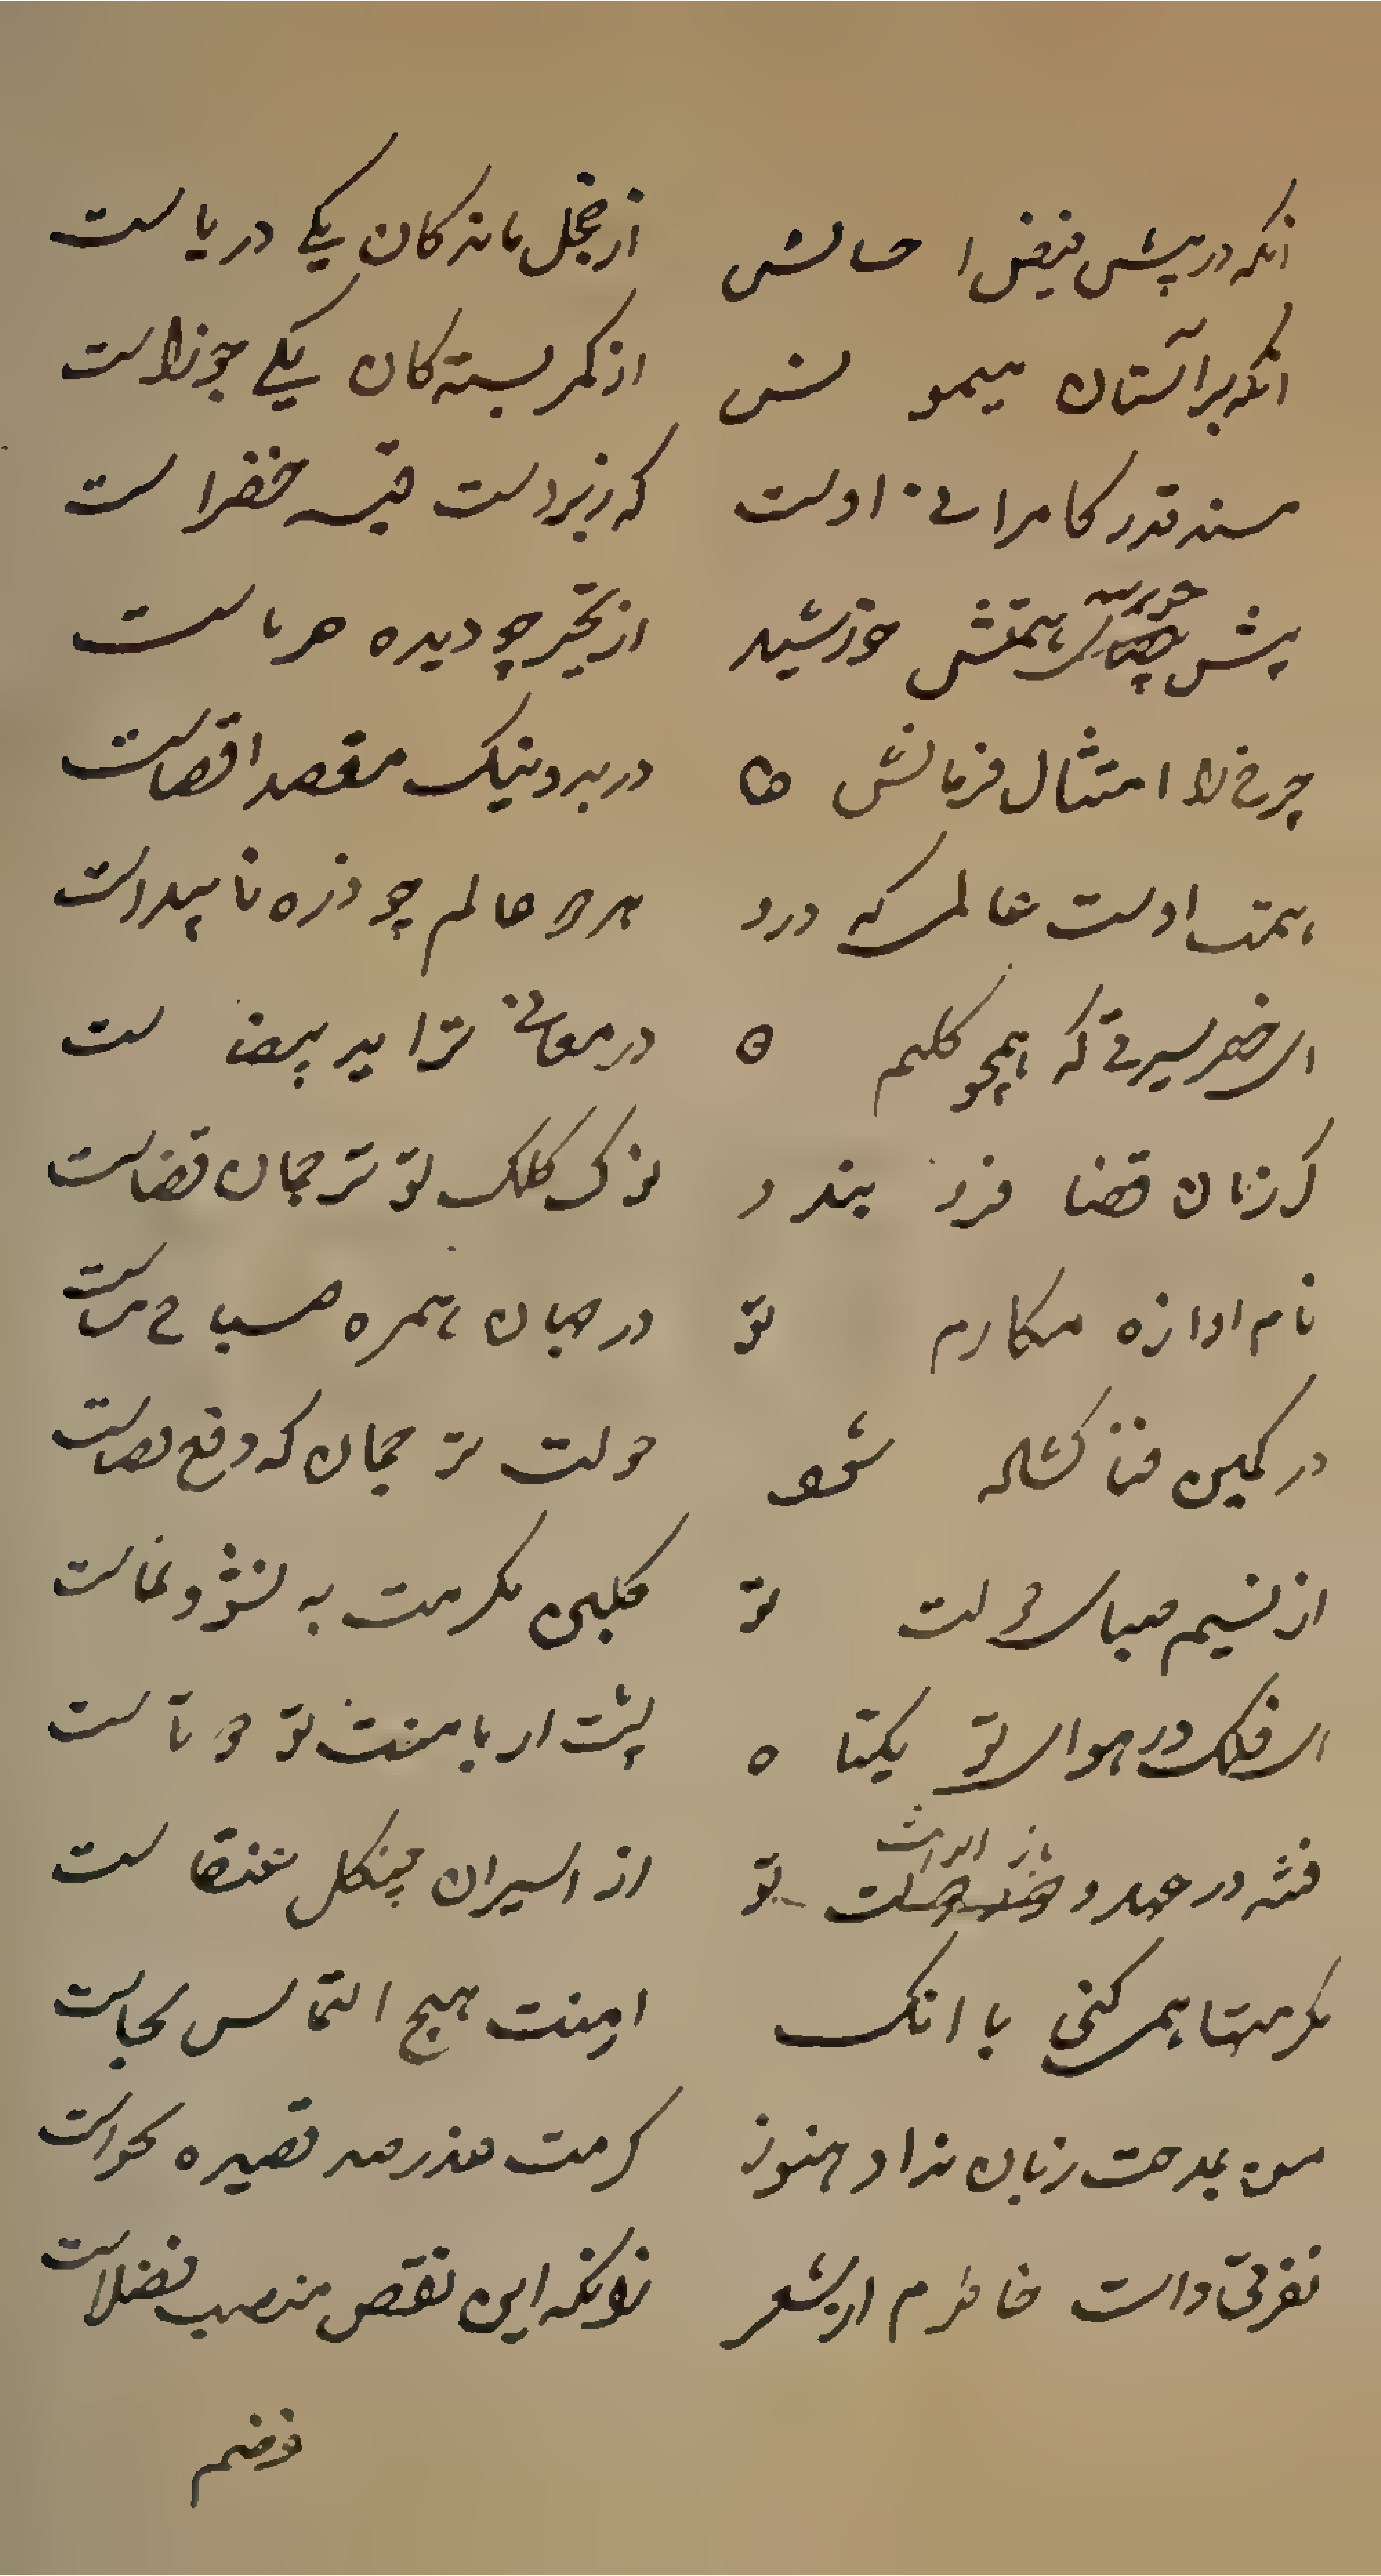 انکه در پیش فیض احسانش از خجل ماندکان یکی دریاست
انکه بر آستان میمونش از کمر بستکان یکی جوزاست
مسند قدر کامرانی اوست که زبردست قبه خضراست
پیش همتش خورشید از تحیر چو دیده حرباست
چرخ را امتثال فرمانش در بد و نیک مقصد اقصاست
همت اوست عالمی که درو هر دو عالم چو ذره ناپیداست
ای خضر سیرتی که همچو کلیم در معانی ترا ید بیضاست
کر زبان قضا فرو بندد نوک کلک تو ترجمان قضاست
نام اوازه مکارم تو در جهان همره صباح و مساست
در کمین فنا کشاده شود دولت ترجمان که وقع
از نسیم صبای دولت تو کلبن مکرمت به نشو و نماست
ای فلک در هوای تو یکتا پشت او با منت تو دوتاست
فتنه در عهد و تو از اسیران چنکل عنقاست
مکرمتها همی کنی با انک امنت هیچ التماس
من بمدحت زبان نداده هنوز کرمت عذر صد قصیده بخواست
نفرتی داشت خاطرم از شعر زونکه این نقص منصب فضلاست